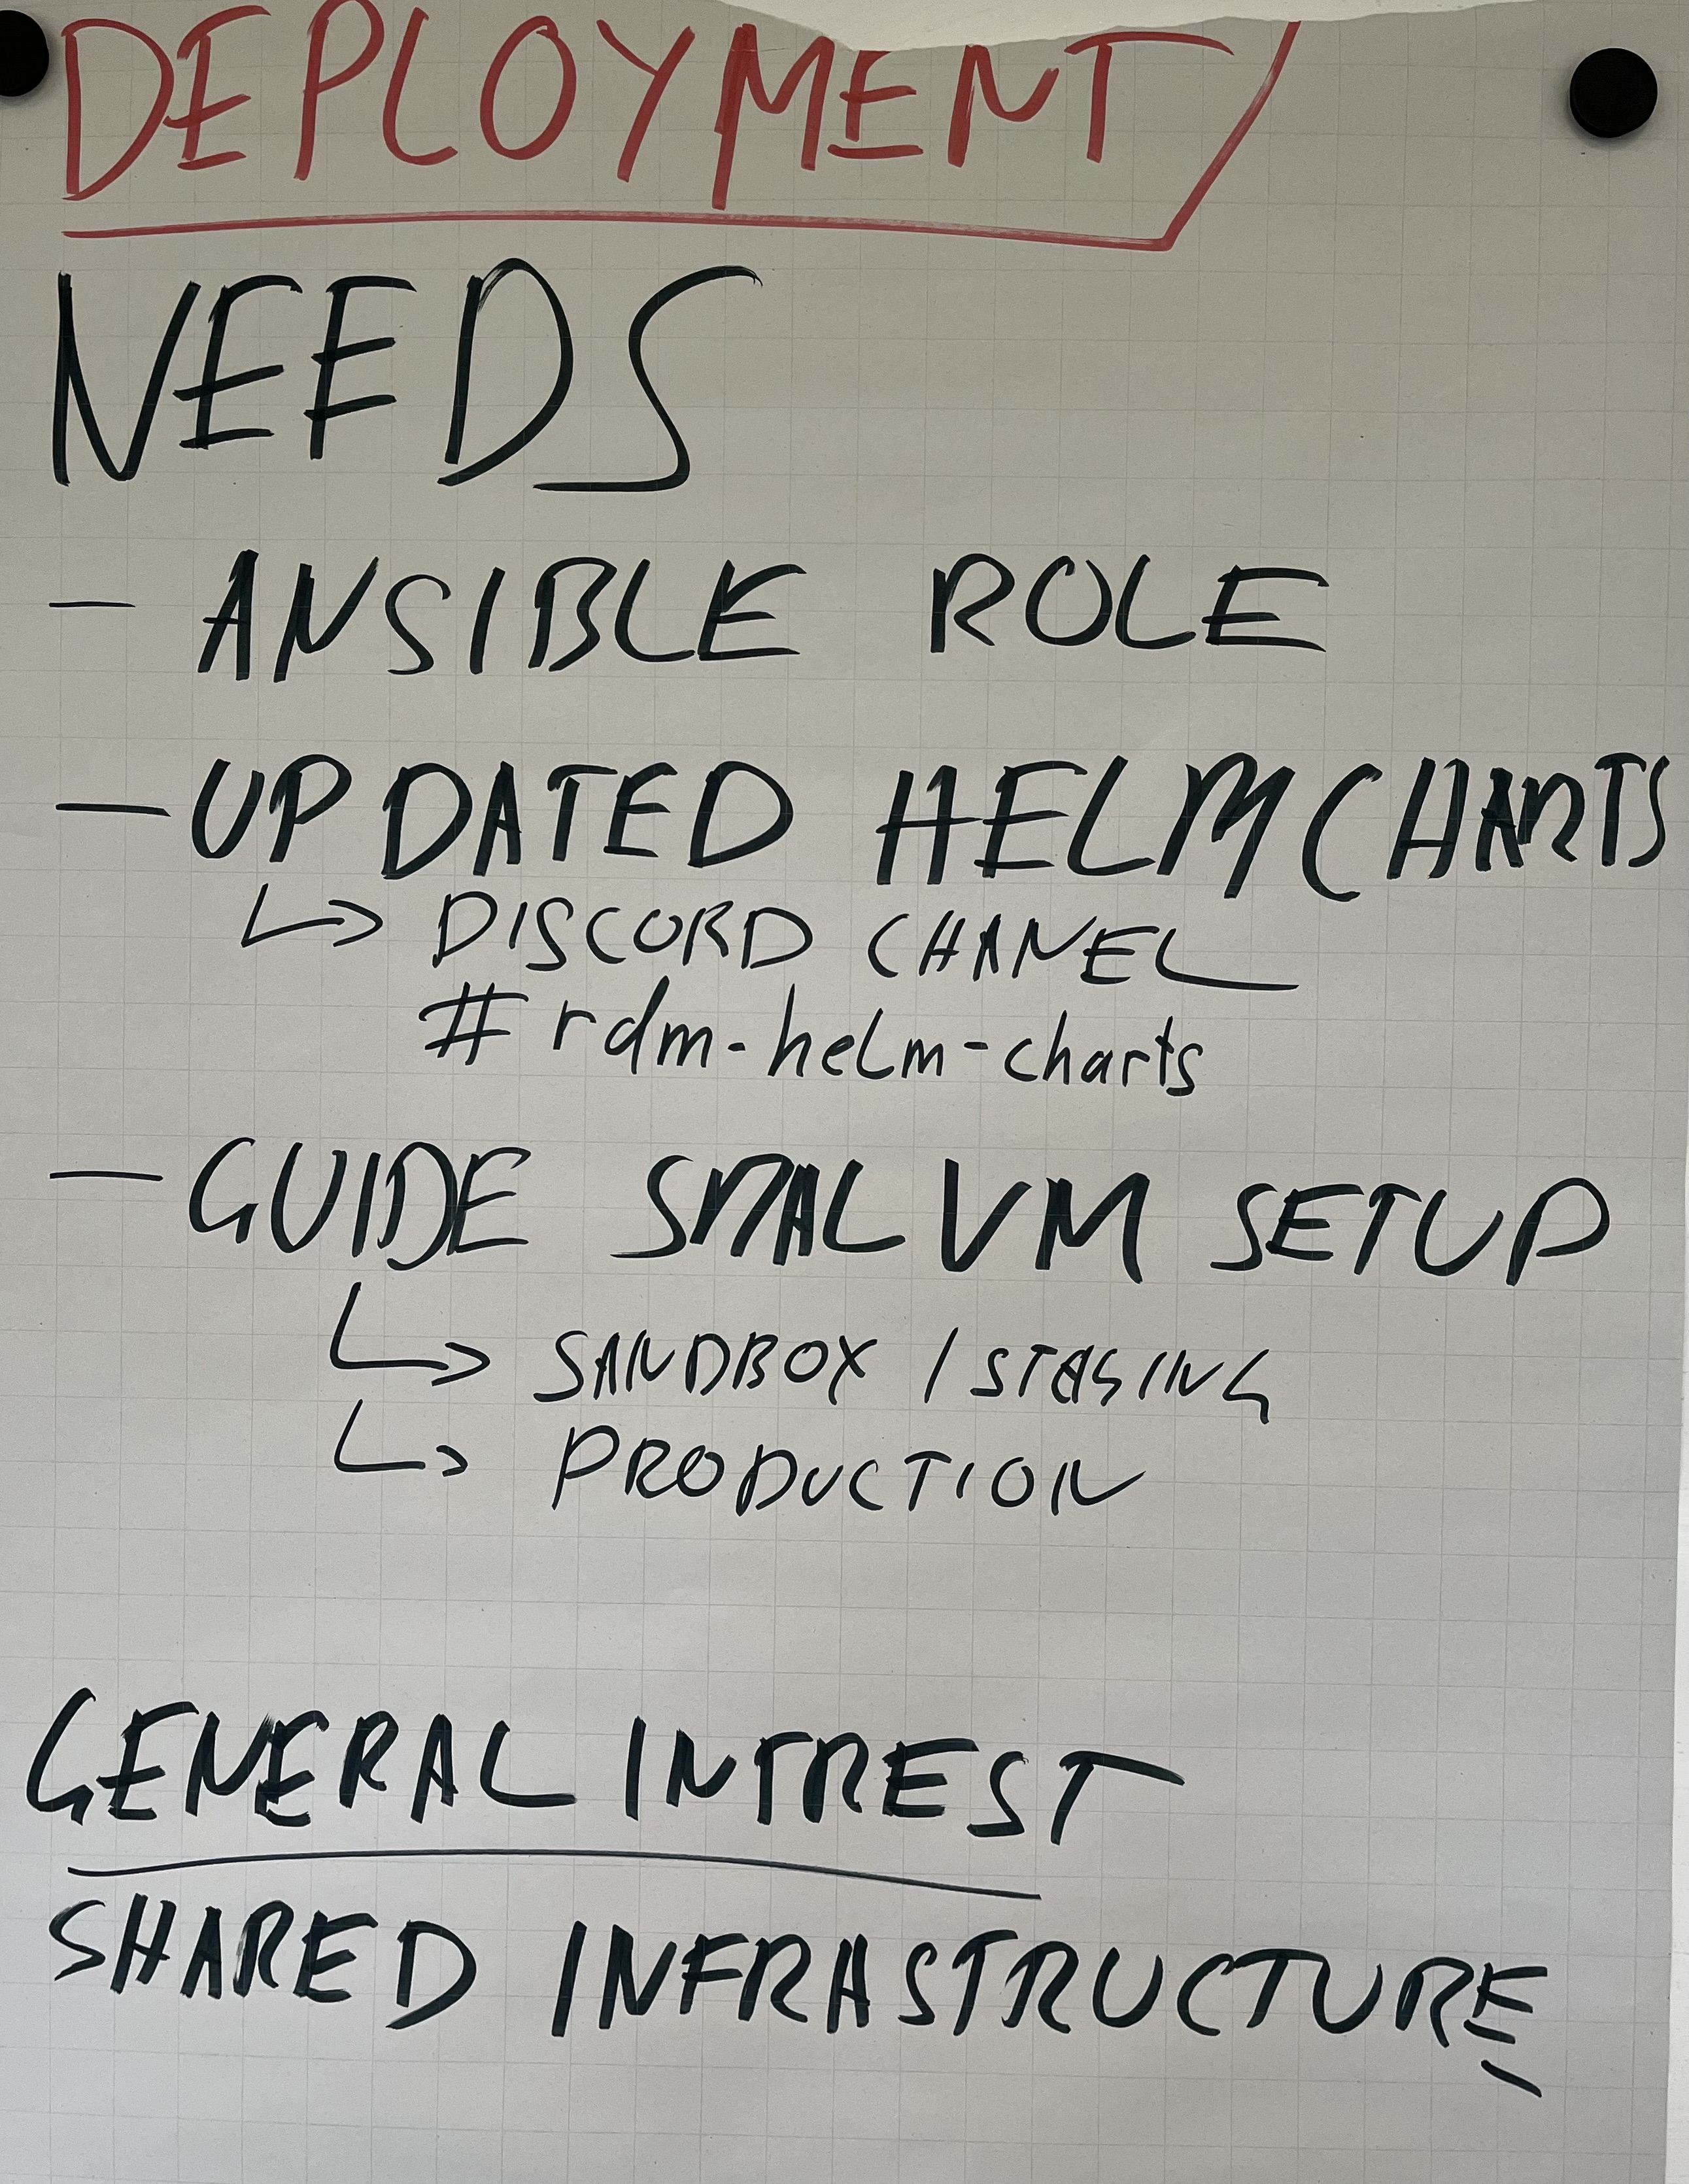 DEPLOYMENT
NEEDS
- ANSIBLE ROLE
- UPDATED HELMCHARTS
↳ DISCORD CHANEL
# rdm-helm-charts
- GUIDE SMAL VM SETUP
↳ SANDBOX / STAGING
↳ PRODUCTION
GENERAL INTREST
SHARED INFRASTRUCTURE